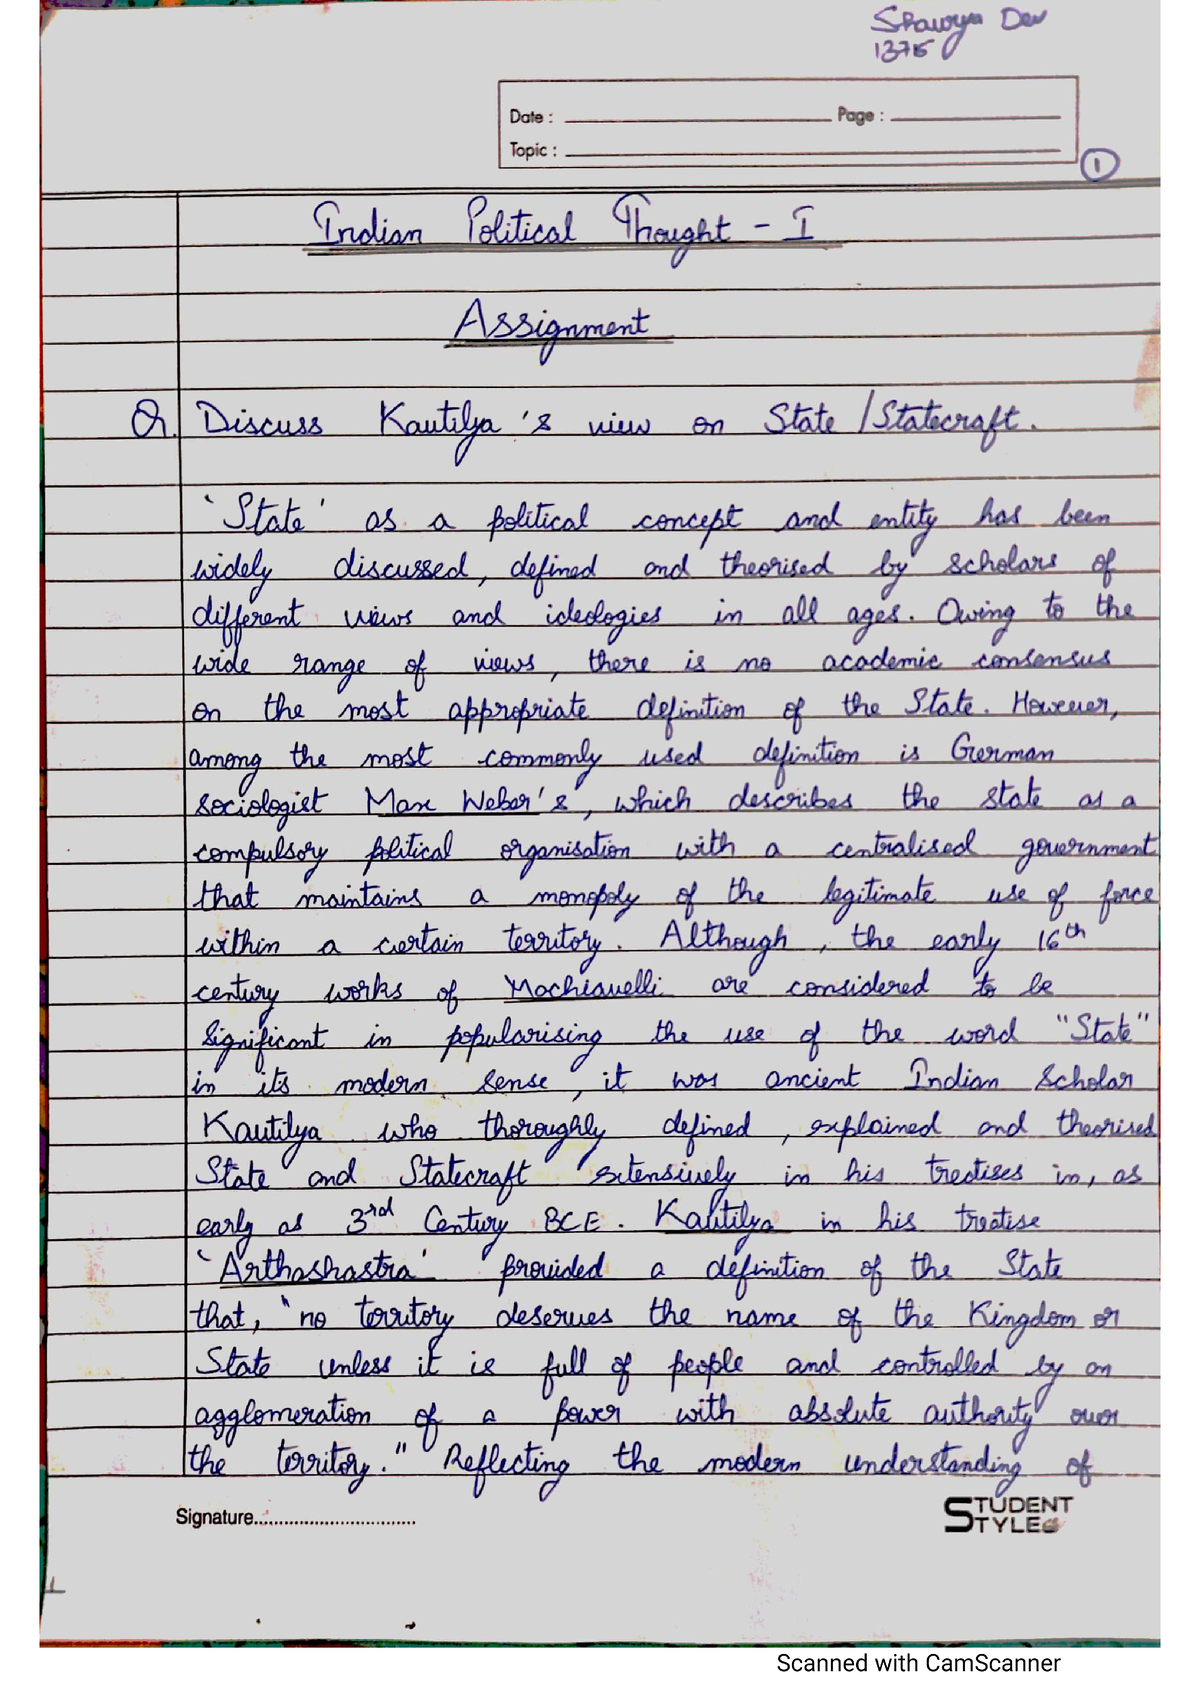 Shaurya Dev
1375
Date : Page :
Topic :
1
Indian Political Thought - I
Assignment
Q. Discuss Kautilya's view on State/Statecraft.
'State' as a political concept and entity has been
widely discussed, defined and theorised by scholars of
different views and ideologies in all ages. Owing to the
wide range of views, there is no academic consensus
on the most appropriate definition of the State. However,
among the most commonly used definition is German
sociologist Max Weber's, which describes the state as a
compulsory political organisation with a centralised government
that maintains a monopoly of the legitimate use of force
within a certain territory. Although, the early 16th
century works of Machiavelli are considered to be
significant in popularising the use of the word "State"
in its modern sense, it was ancient Indian Scholar
Kautilya who thoroughly defined, explained and theorised
State and Statecraft extensively in his treatises in, as
early as 3rd Century BCE. Kautilya in his treatise
'Arthashastra' provided a definition of the State
that, "no territory deserves the name of the Kingdom or
State unless it is full of people and controlled by an
agglomeration of a power with absolute authority over
the territory." Reflecting the modern understanding of
Signature..............................
STUDENT
STYLE
Scanned with CamScanner